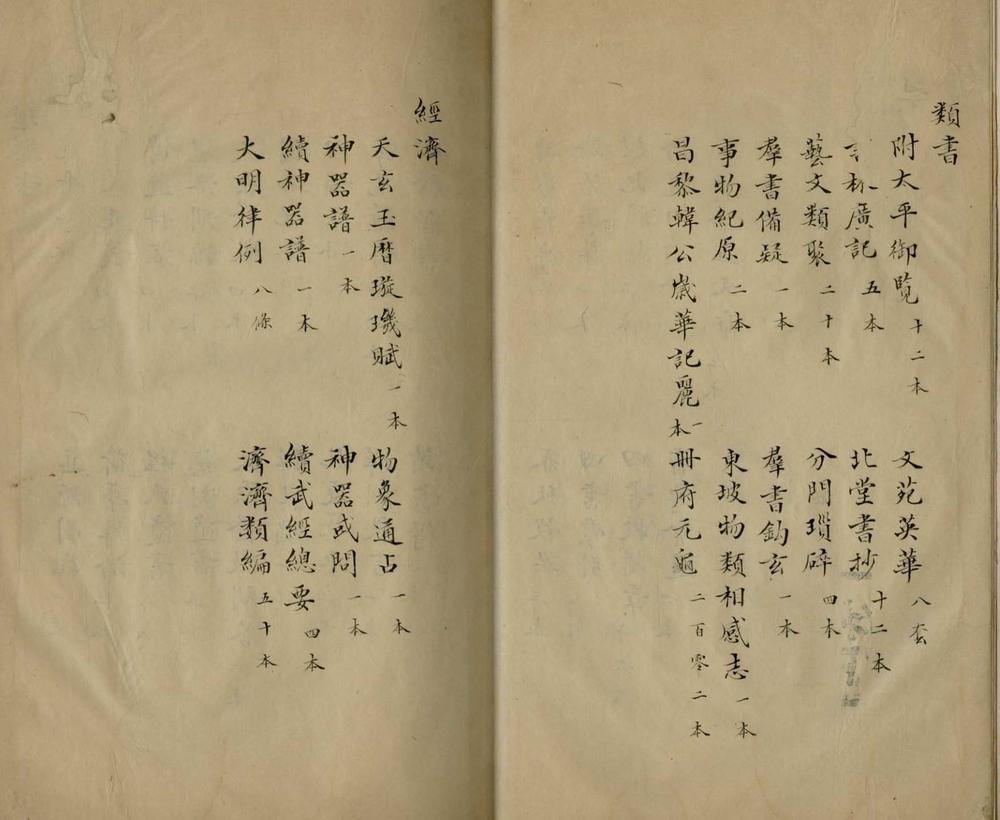 類書
附太平御覽十二本
文苑英華八套
林廣記五本
北堂書抄十二本
藝文類聚二十本
分門瑣碎四本
羣書備疑一本
羣書鈎玄一本
事物紀原二本
東坡物類相感志一本
昌黎韓公歲華記麗一本
冊府元龜二百零二本
經濟
天玄玉曆璇璣賦一本
物象通占一本
神器譜一本
神器或問一本
續神器譜一本
續武經總要四本
大明律例八條
濟濟類編五十本